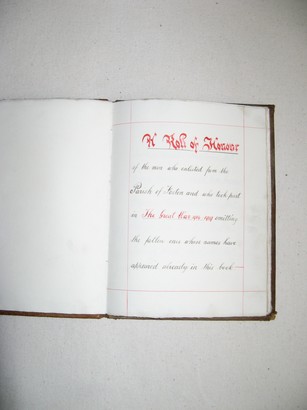 A Roll of Honour
of the men who enlisted from the
Parish of and who took part
in The Great War, omitting
the fallen ones whose names have
appeared already in this book —